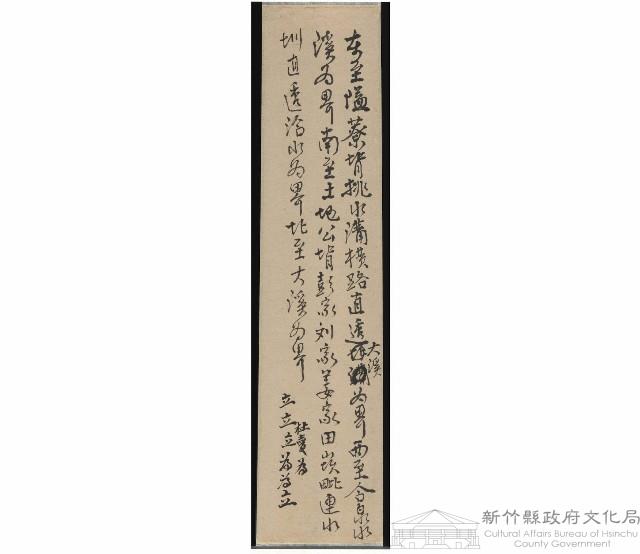 東至隘藔背挑水浦橫路直透大溪為界西至令泉水
溪為界南至土地公背彭家刘家姜家田山崁毗連水
圳直透泻水為界北至大溪為界
立立立為為立
杜賣為
新竹縣政府文化局
Cultural Affairs Bureau of Hsinchu
County Government